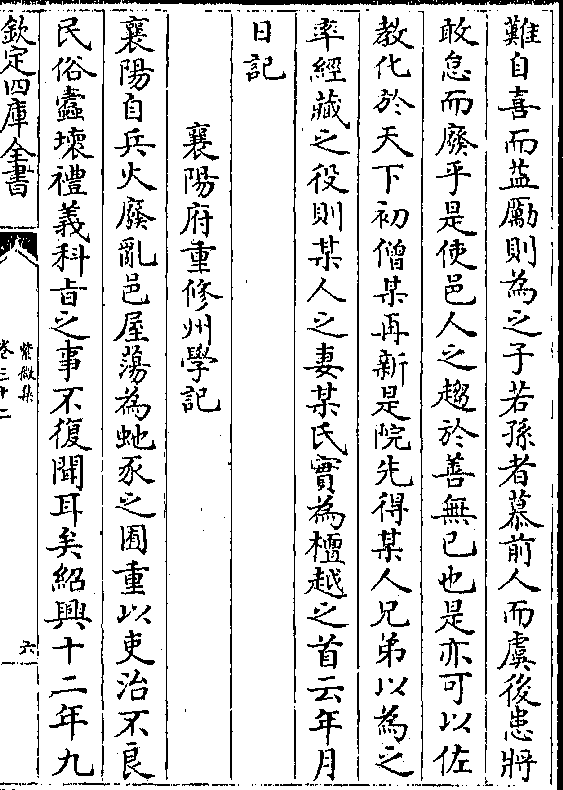 難自喜而益勵則為之子若孫者慕前人而虞後患將
敢怠而廢乎是使邑人之趨於善無已也是亦可以佐
教化於天下初僧某再新是院先得某人兄弟以為之
率經藏之役則某人之妻某氏實為檀越之首云年月
日記
襄陽府重修州學記
襄陽自兵火廢亂邑屋蕩為虵豕之囿重以吏治不良
民俗蠹壞禮義科㫖之事不復聞耳矣紹興十二年九
欽定四庫全書
紫微集
卷三十二
六